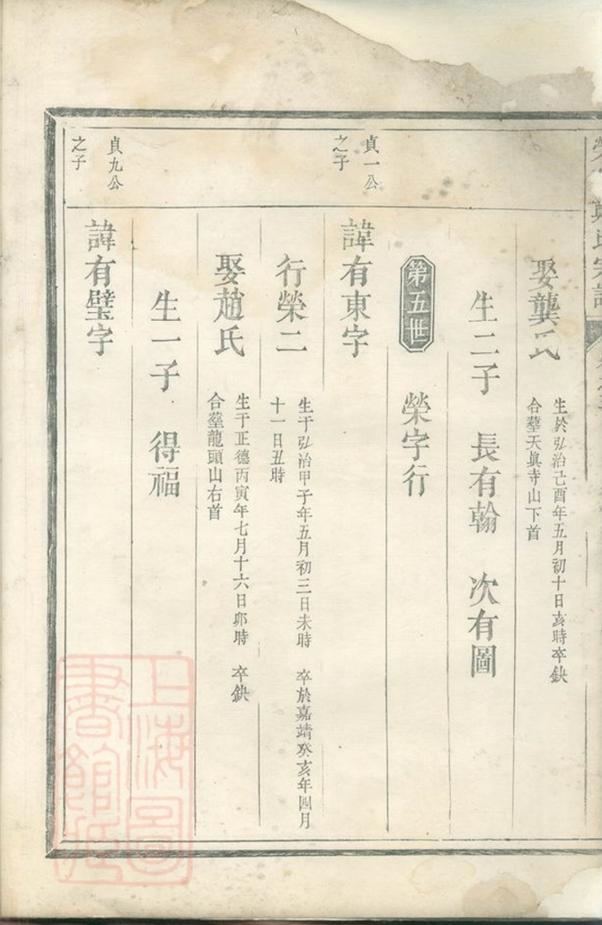 娶龔氏
生於弘治己酉年五月初十日亥時卒缺
合塟天真寺山下首
生二子 長有翰 次有圖
第五世 榮字行
貞一公
之子
諱有東字
行榮二
生于弘治甲子年五月初三日未時 卒於嘉靖癸亥年四月
十一日丑時
娶趙氏
生于正德丙寅年七月十六日卯時 卒缺
合塟龍頭山右首
生一子 得福
貞九公
之子
諱有璧字
上海圖
書館藏